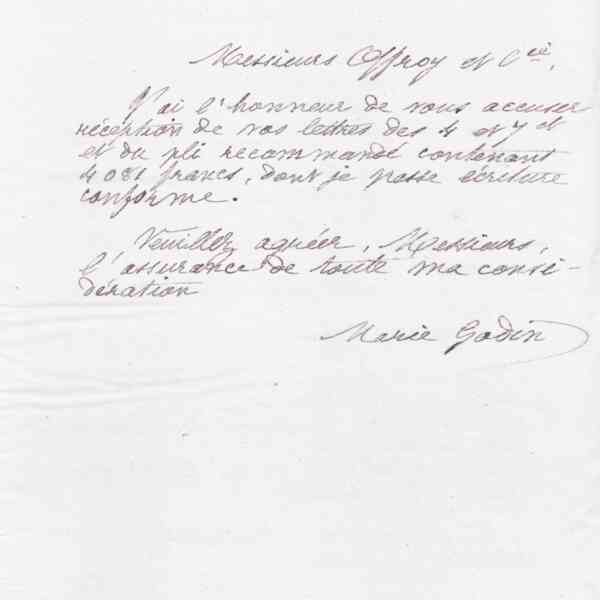 Messieurs Offroy et Cie,
J'ai l'honneur de vous accuser
réception de vos lettres des 4 et 7 ct
et du pli recommandé contenant
4 081 francs, dont je passe écriture
conforme.
Veuillez agréer, Messieurs,
l'assurance de toute ma consi-
dération
Marie Godin